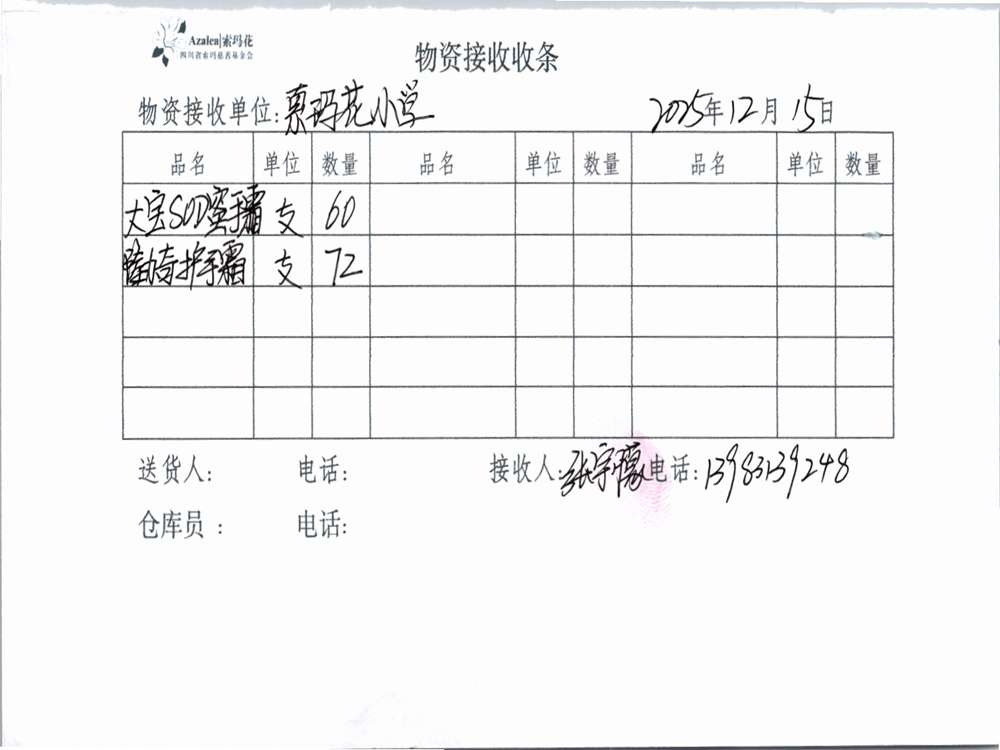 Azalea|索玛花
四川省索玛慈善基金会
物资接收收条
物资接收单位:索玛花小学 2025年12月15日
品名 单位 数量 品名 单位 数量 品名 单位 数量
大宝SOD蜜手霜 支 60
隆力奇护手霜 支 72
送货人: 电话: 接收人:张宇 电话:13983139248
仓库员 : 电话: